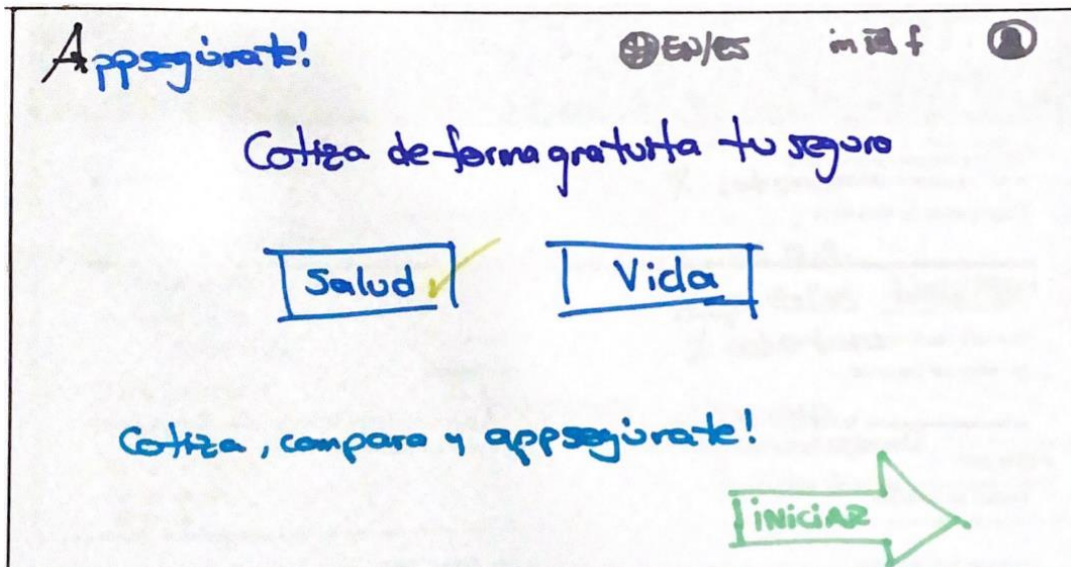 Appsegúrate!
EN/ES
in f
Cotiza de forma gratuita tu seguro
Salud
Vida
Cotiza, compara y appsegúrate!
iNiCiAR